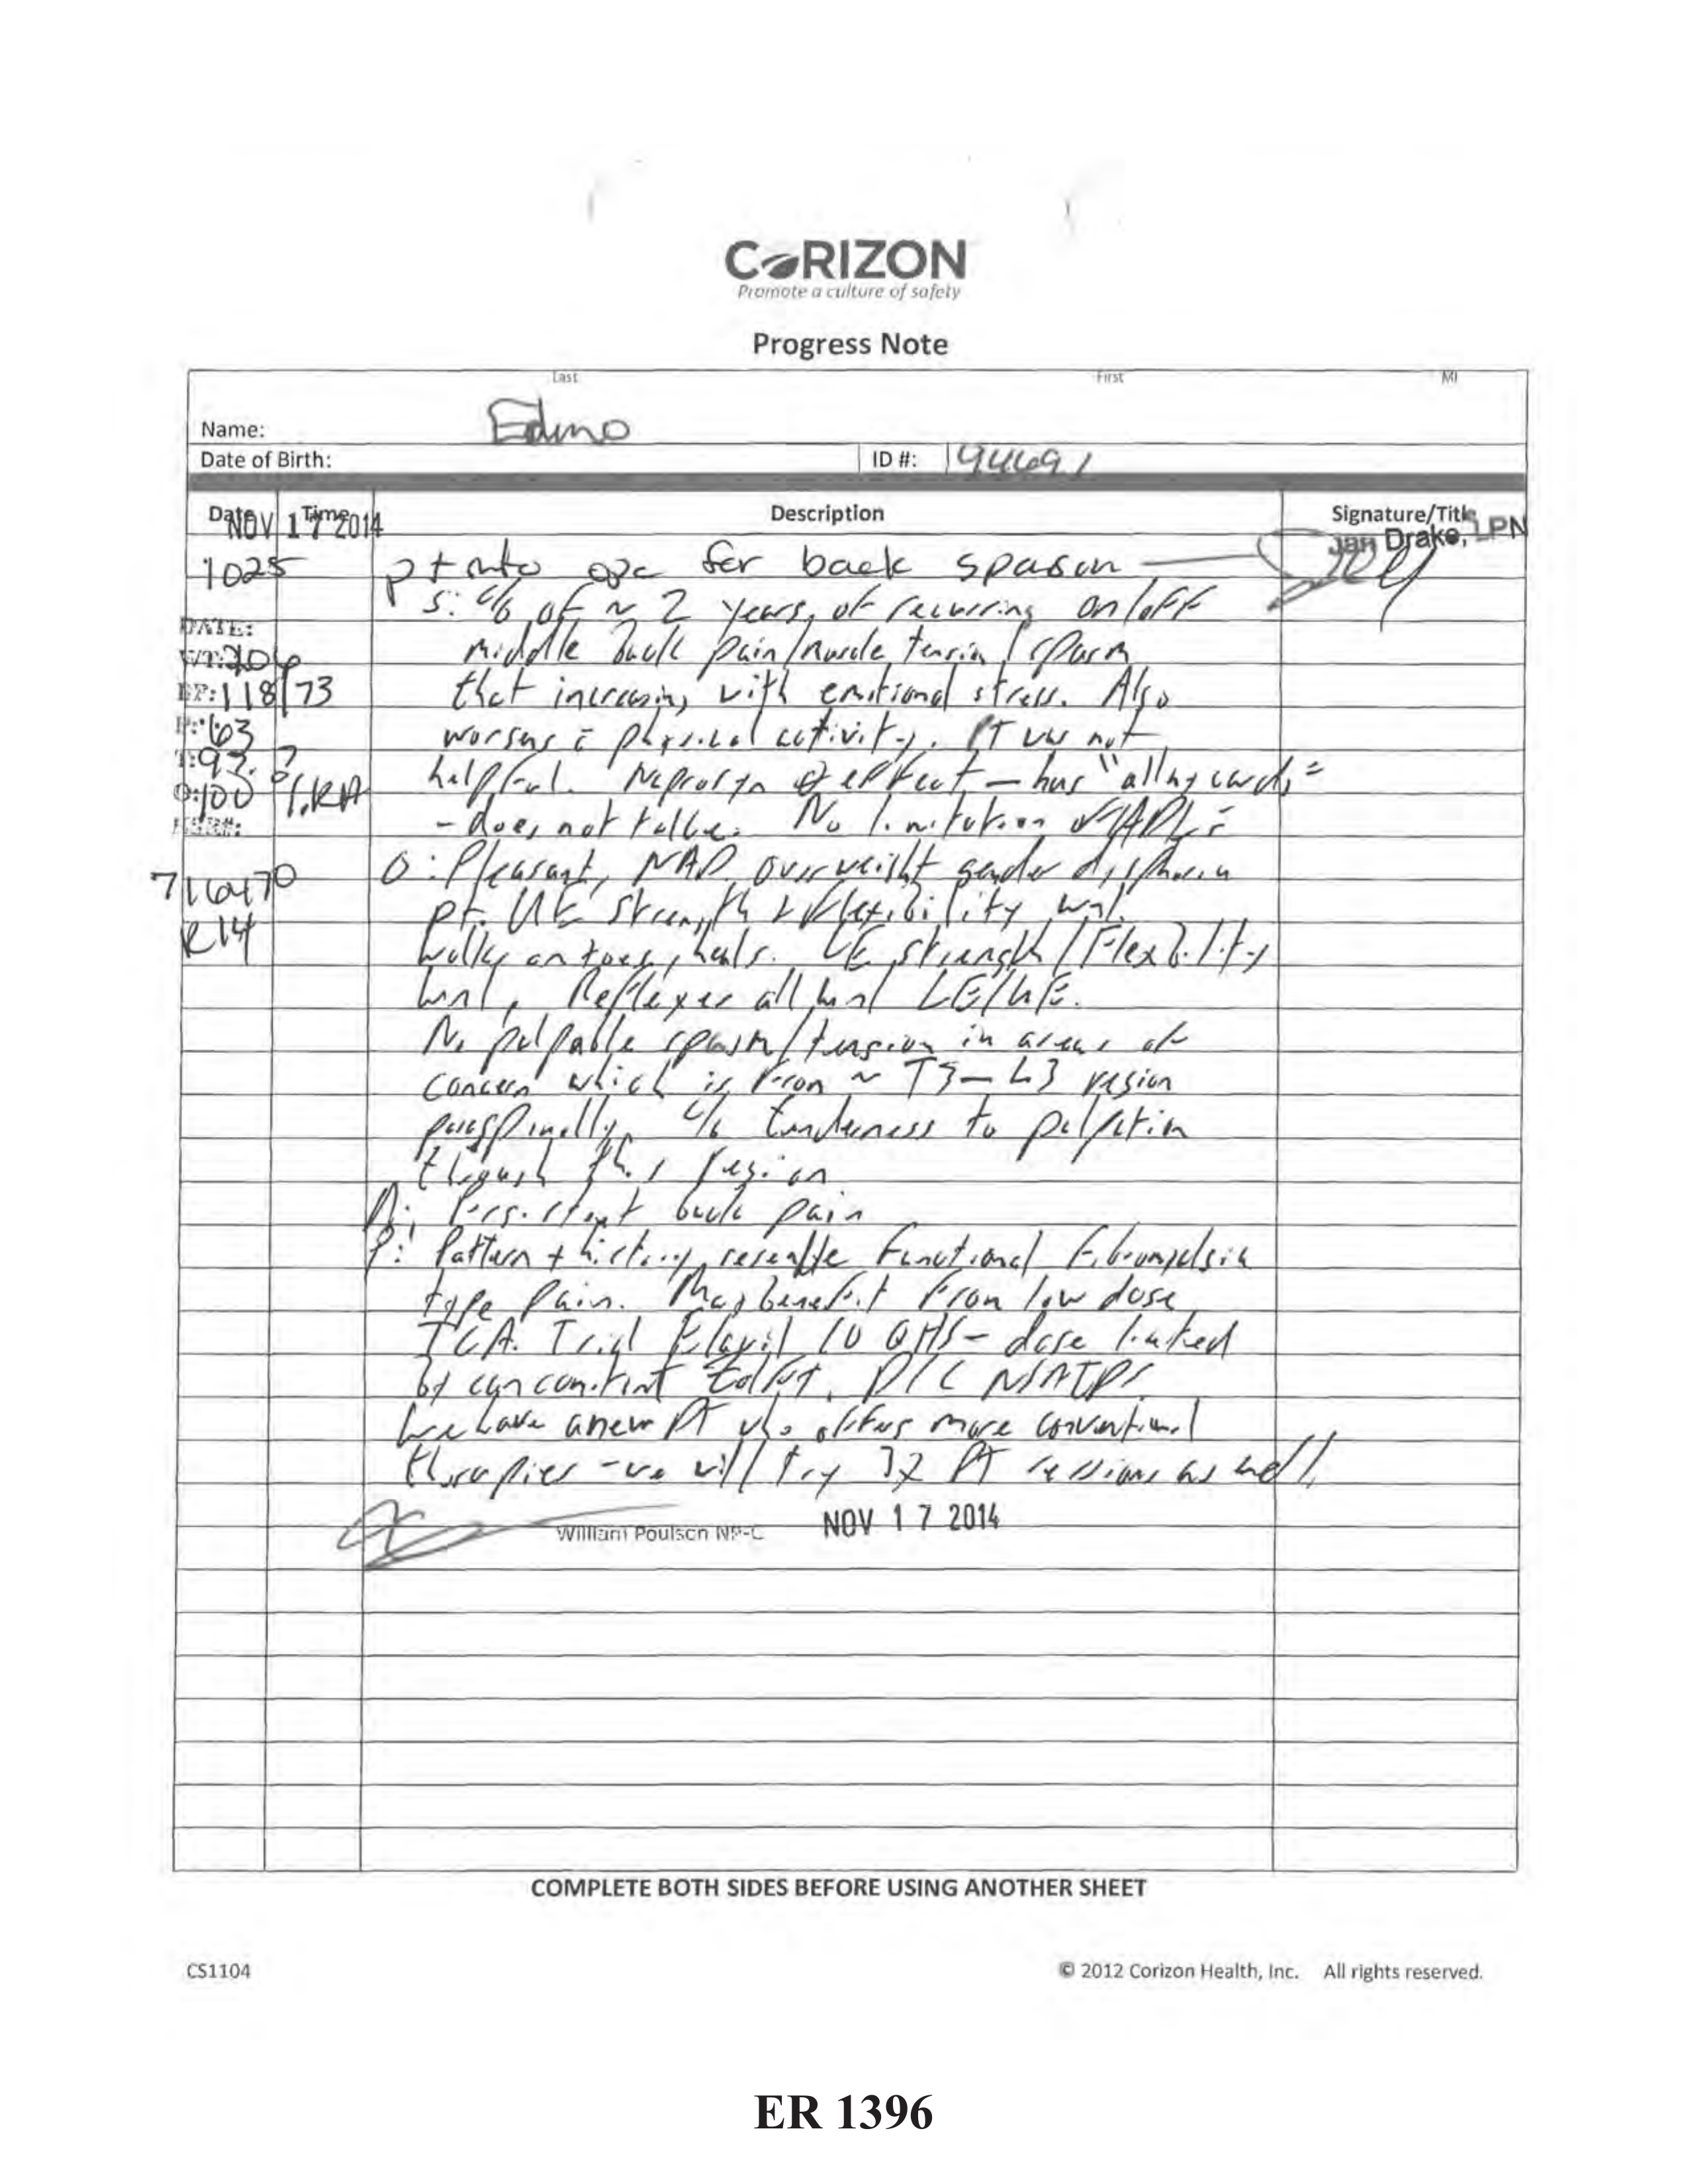 CORIZON
Promote a culture of safety
Progress Note
Last First MI
Name: Edmo
Date of Birth: ID #: 94691
Date Time Description Signature/Title
NOV 17 2014 Jan Drake, LPN
1025 pt into for back spasm
S: c/o of ~ 2 years of recurring on/off
DATE:
WT: 206 middle back pain/muscle tension/spasm
BP: 118/73 that increasing with emotional stress. Also
P: 63 worsens c physical activity. PT was not
T: 97. helpful. Naprosyn effect - has
O: 100 % RA - does not No limitation ADL
716470 O: Pleasant, NAD overweight gender dysphoria
R14 pt. UE strength & flexibility wnl.
walks on toes, heals. LE strength/Flexibility
wnl, Reflexes all wnl LE/UE.
No palpable spasm/tension in areas of
concern which is from ~ T3-L3 region
paraspinally c/o tenderness to palpation
this region
A: Persistent back pain
P: Pattern + history resemble functional fibromyalgia
type pain. May benefit from low dose
TCA. Trial Elavil 10 QHS - dose limited
by D/C NSAIDs
We have a new PT who offers more conventional
therapies - we will try PT sessions as well.
William Poulson NP-C NOV 17 2014
COMPLETE BOTH SIDES BEFORE USING ANOTHER SHEET
CS1104 © 2012 Corizon Health, Inc. All rights reserved.
ER 1396